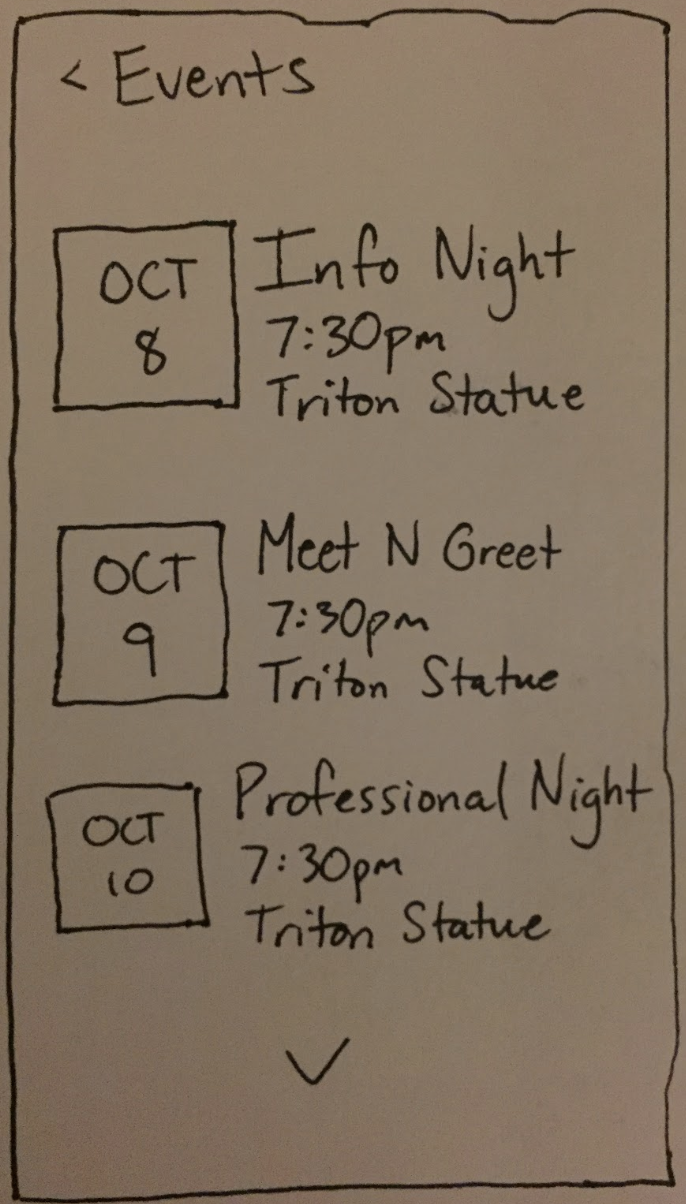 < Events
OCT
8
Info Night
7:30pm
Triton Statue
OCT
9
Meet N Greet
7:30pm
Triton Statue
OCT
10
Professional Night
7:30pm
Triton Statue